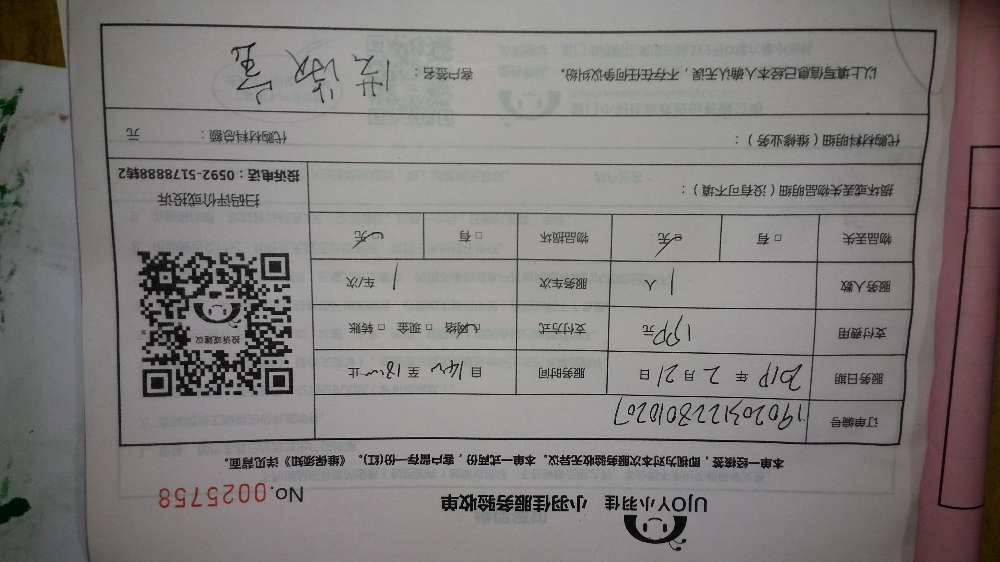 UJOY小羽佳 小羽佳服务验收单
No.0025758
本单一经接签，即视为对本次服务验收无异议。本单一式两份，客户留存一份(红)。《维保须知》详见背面。
订单编号 1902031228010207
服务日期 2019 年 2 月 21 日 服务时间 自 14:00 至 18:00 止
支付费用 190元 支付方式 ☑网络 □ 现金 □ 转账
服务人数 1 人 服务车次 1 车/次
物品丢失 □ 有 ☑无 物品损坏 □ 有 ☑无
损坏或丢失物品明细（没有可不填）：
投诉或建议
扫码评价或投诉
投诉电话：0592-5178888转2
代购材料明细（维修业务）： 代购材料总额： 元
以上填写信息已经本人确认无误，不存在任何争议纠纷。 客户签名：